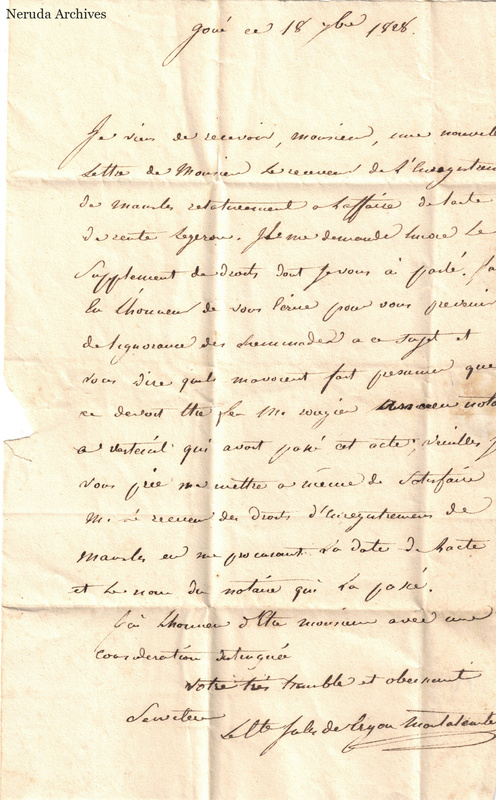 Neruda Archives
ce 18 7bre 1828.
Je viens de recevoir, monsieur, une nouvelle
Lettre de Monsieur Le receveur de L'Enregistrem
de mansles relativement a Laffaire de lacte
de vente Legeron. Il me demande encore Le
Supplement de droits dont Je vous ai parlé. J'ai
Eu Lhonneur de vous Ecrire pour vous prevenir
de Lignorance des a ce Sujet et
vous dire quils mavoient fait presumer que
ce devoit Etre feu Mr rougier ancien nota
a verteuil qui avoit passé cet acte; veuillez j
vous prie me mettre a même de Satisfaire
Mr Le receveur des droits d'Enregistrement de
mansles en me procurant La date de Lacte
et Le nom du notaire qui La passé.
J'ai Lhonneur d'Etre monsieur avec une
consideration distinguée
votre très humble et obeissant
Serviteur
Le Cte Jules de